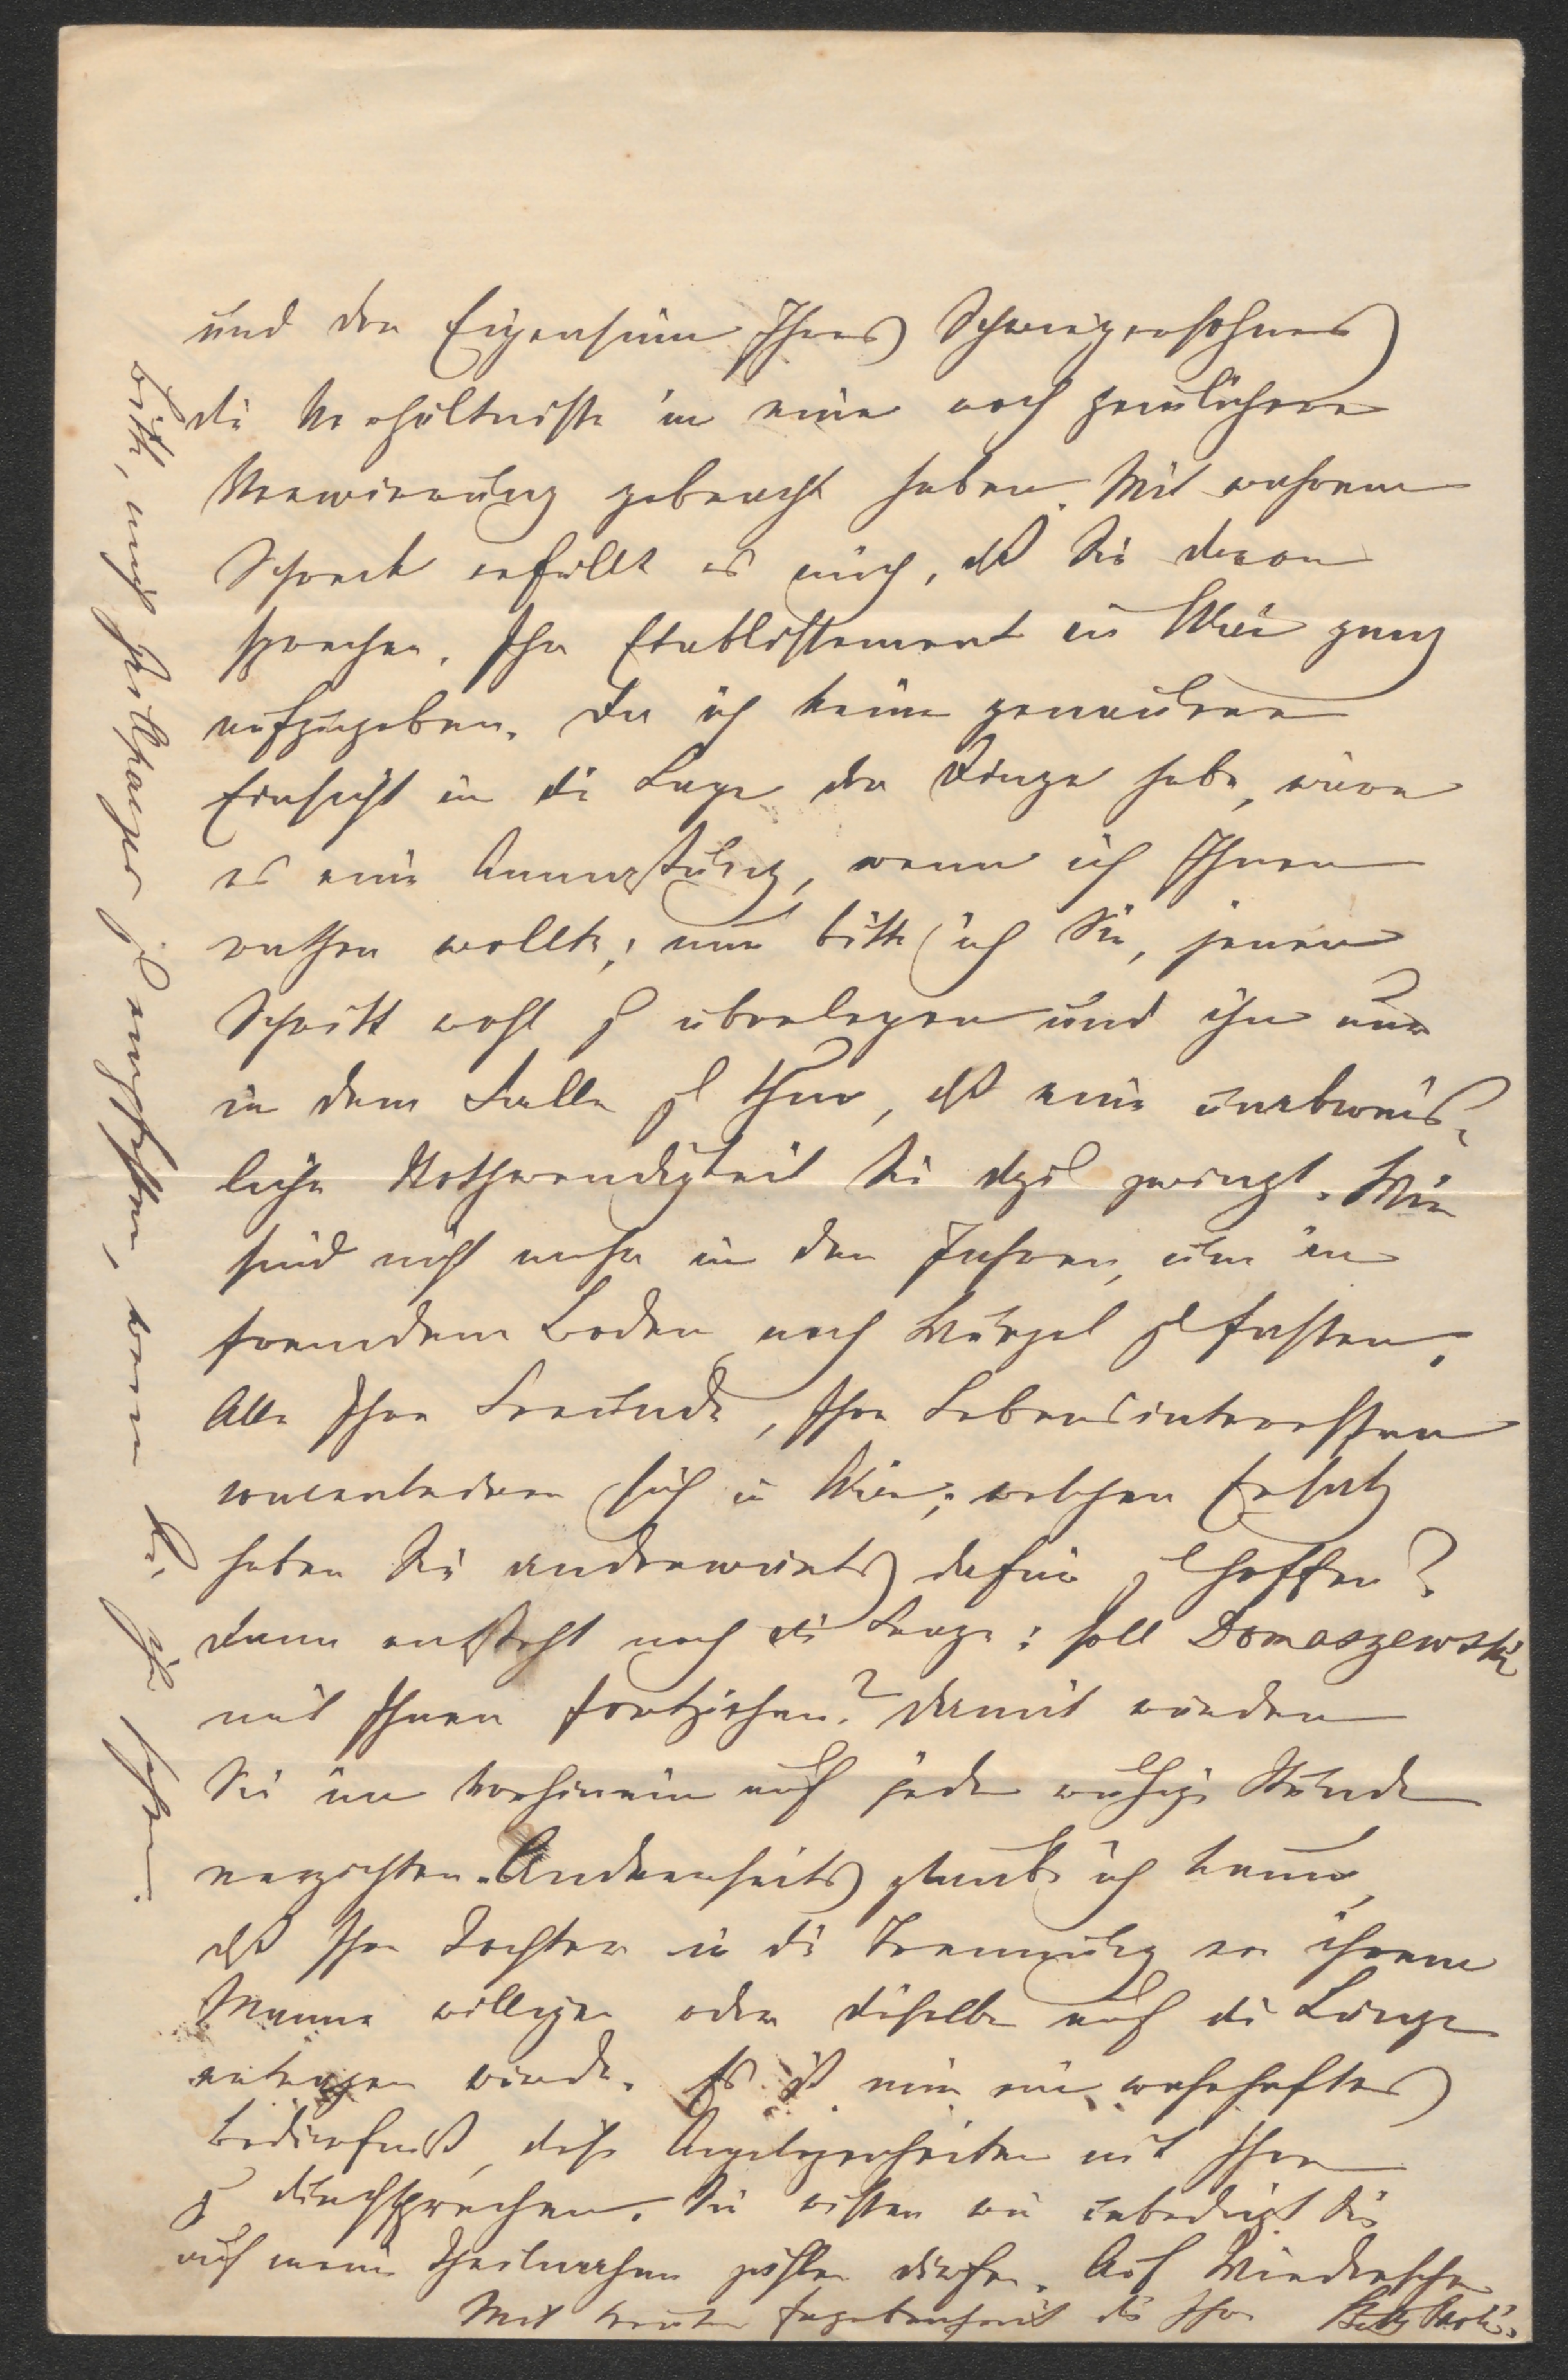 und der Eigensinn Ihres Schwiegersohnes
die Verhältnisse in eine noch greulichere
Verwirrung gebracht haben. Mit wahrem
Schreck erfüllt es mich, dß Sie davon
sprechen, Ihr Etablissement in Wien ganz
aufzugeben. Da ich keine genauere
Einsicht in die Lage der Dinge habe, wäre
es eine Anmaßung, wenn ich Ihnen
rathen wollte; nur bitte ich Sie, jenen
Schritt wohl zu überlegen und ihn nur
in dem Falle zu thun, dß eine unabweis-
liche Nothwendigkeit Sie dazu zwingt. Wir
sind nicht mehr in den Jahren, um in
fremdem Boden noch Wurzel zu fassen.
Alle Ihre Freunde, Ihre Lebensinteressen
concentriren sich in Wien; welchen Ersatz
haben Sie anderwärts dafür zu hoffen?
Dann entsteht noch die Frage: soll Domaszewski
mit Ihnen fortziehen? Damit würden
Sie im Vorhinein auf jede ruhige Stunde
verzichten. Andererseits glaube ich kaum,
dß Ihre Tochter in die Trennung von ihrem
Manne willigen oder dieselbe auf die Länge
ertragen würde. Es ist mir ein wahrhaftes
Bedürfniß, diese Angelegenheiten mit Ihnen
zu durchsprechen. Sie wissen wie unbedingt Sie
auf meine Theilnahme zählen dürfen. Auf Wiedersehen
Mit treuer Ergebenheit die Ihre Betty Paoli.
bitte, mich zu
wenn Sie